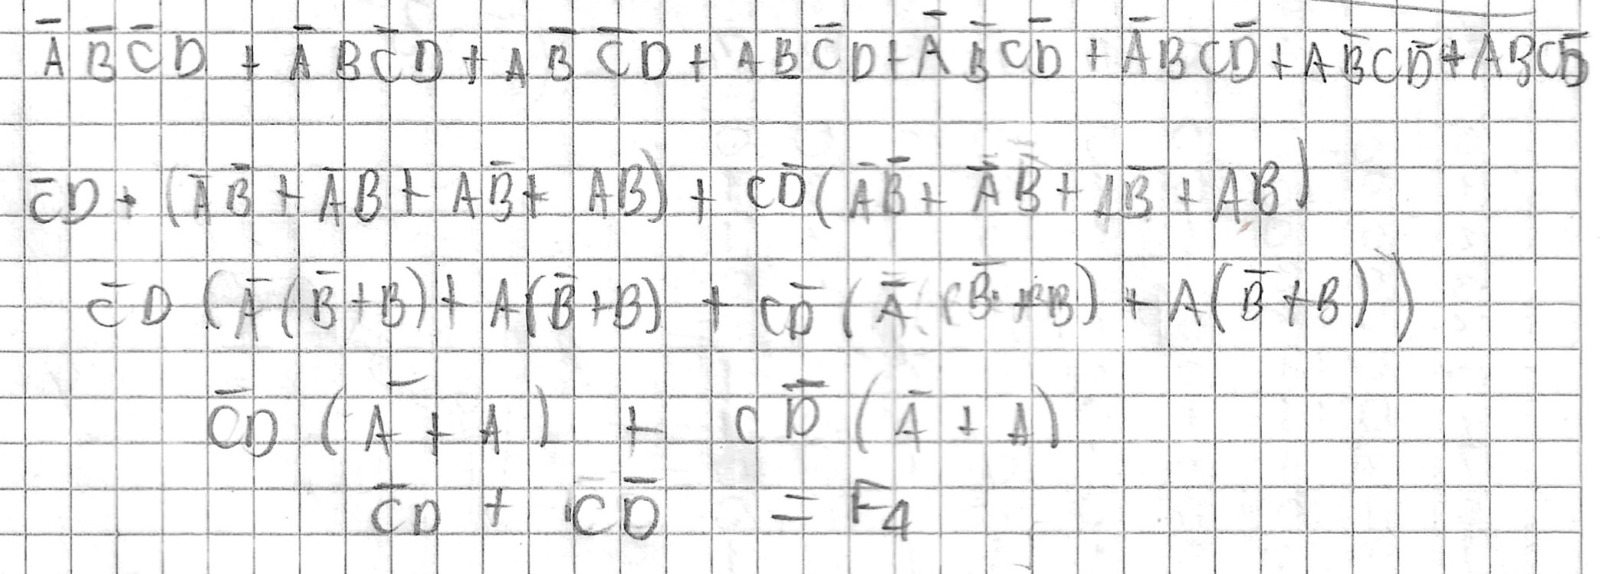 A̅ B̅ C̅ D + A̅ B C̅ D + A B̅ C̅ D + A B C̅ D + A̅ B̅ C D̅ + A̅ B C D̅ + A B̅ C D̅ + A B C D̅
C̅ D + (A̅ B̅ + A̅ B + A B̅ + A B) + C D̅ (A̅ B̅ + A̅ B̅ + A B̅ + A B)
C̅ D (A̅ (B̅ + B) + A (B̅ + B) + C D̅ (A̅ (B̅ + B) + A (B̅ + B))
C̅ D (A̅ + A) + C D̅ (A̅ + A)
C̅ D + C D̅ = F4